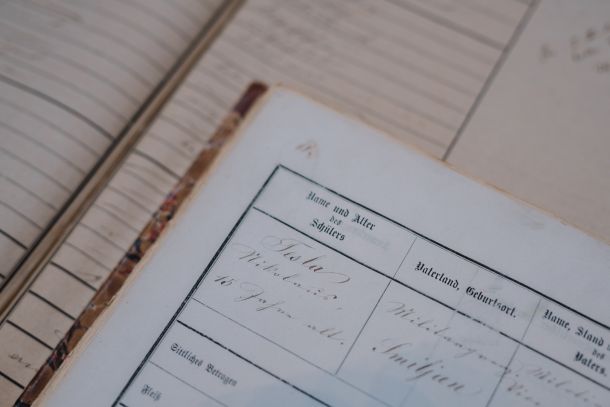 Name und Alter
des
Schülers
Vaterland, Geburtsort.
Name, Stand
des
Vaters.
Tesla
Nikolaus,
15 Jahre alt.
Smiljan
Sittliches Betragen
Fleiß